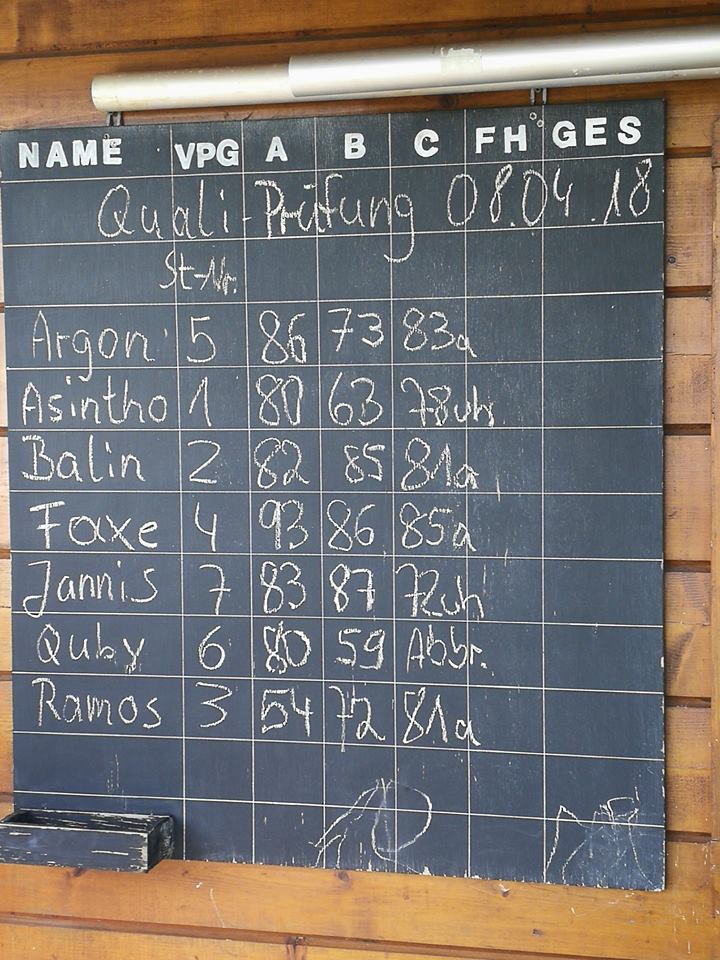 NAME VPG A B C FH GES
Quali-Prüfung 08.04.18
St-Nr.
Argon 5 86 73 83a
Asintho 1 80 63 78uh
Balin 2 82 85 81a
Faxe 4 93 86 85a
Jannis 7 83 87 72uh
Quby 6 80 59 Abbr.
Ramos 3 54 72 81a